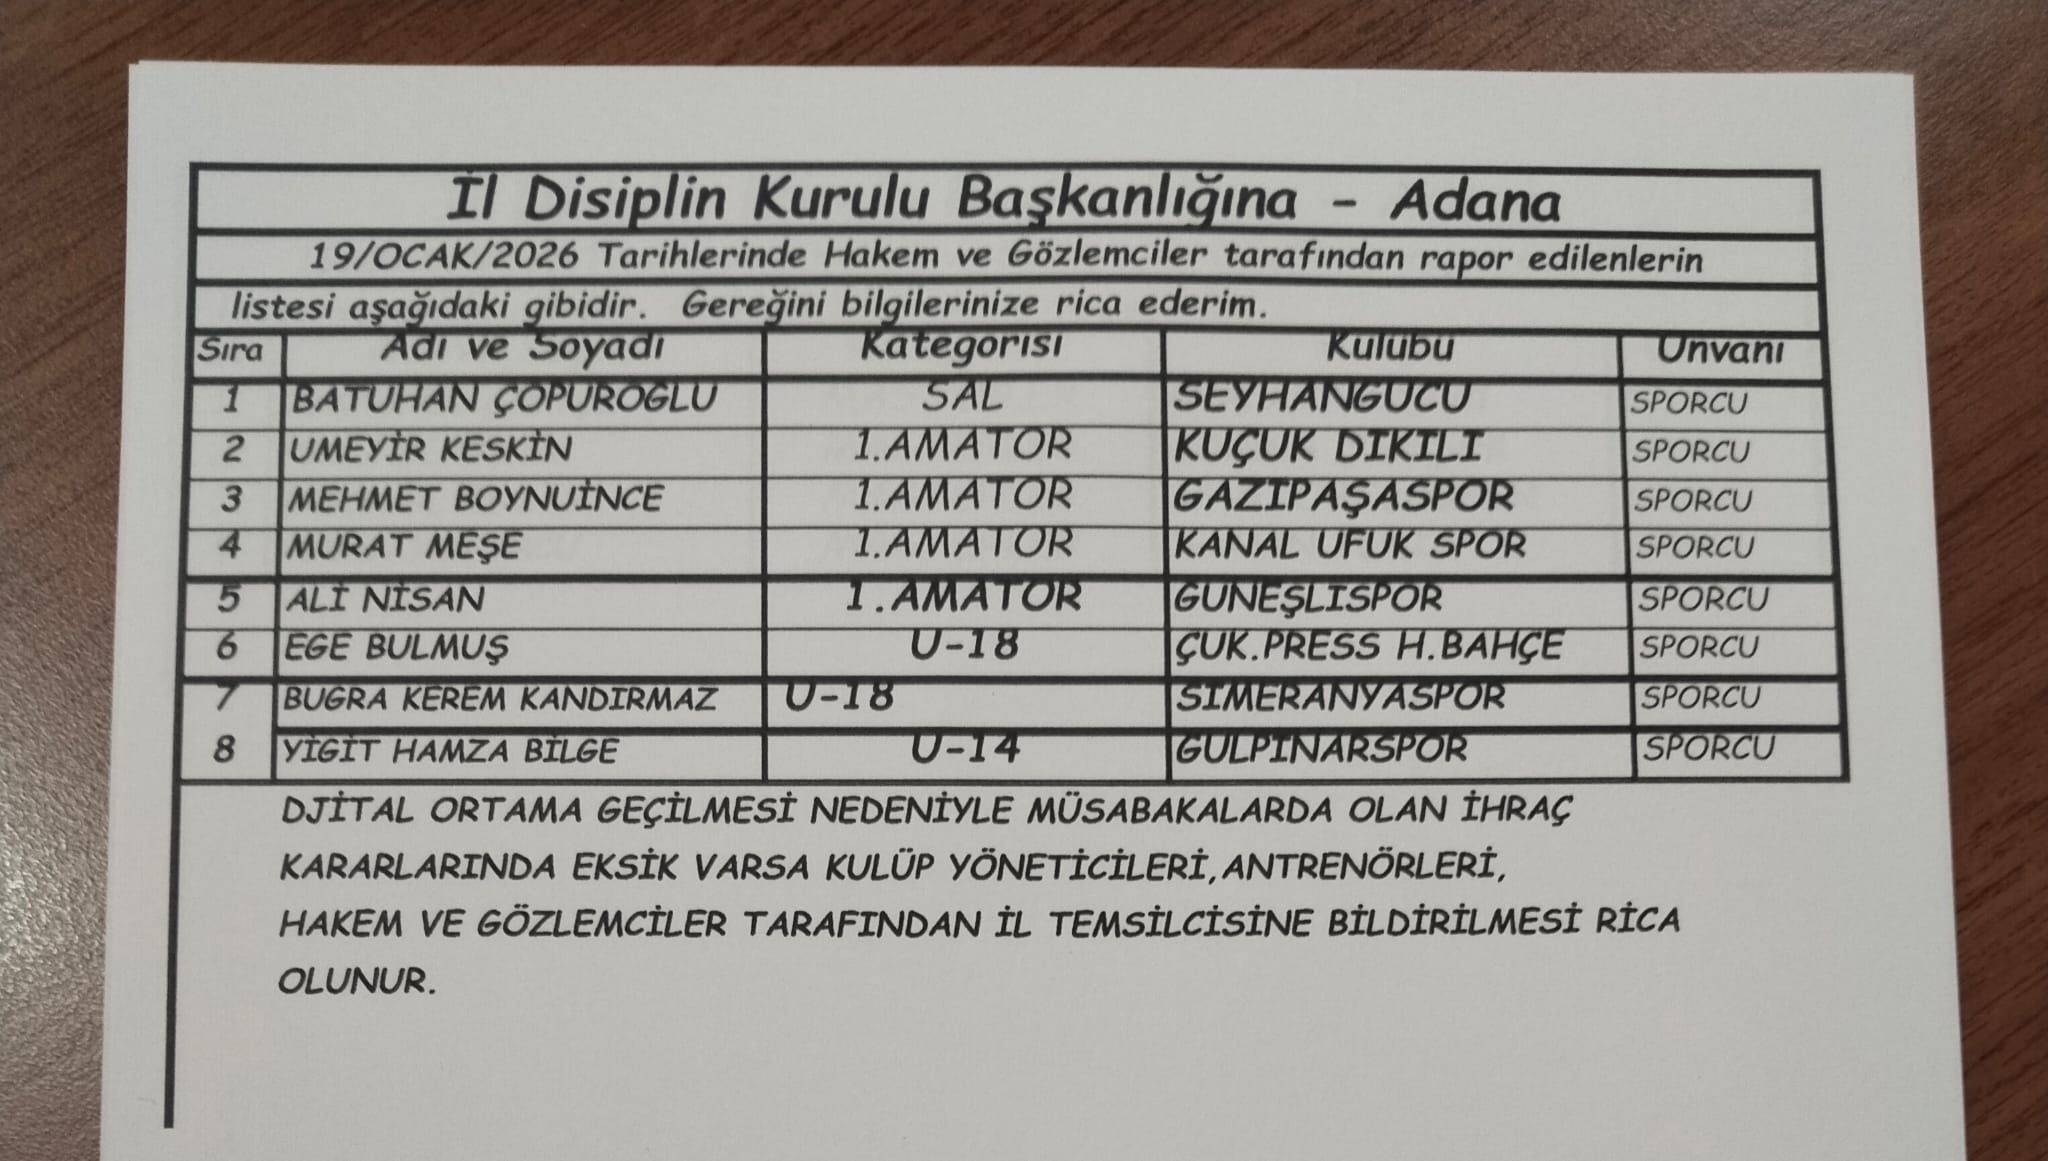 İl Disiplin Kurulu Başkanlığına - Adana
19/OCAK/2026 Tarihlerinde Hakem ve Gözlemciler tarafından rapor edilenlerin
listesi aşağıdaki gibidir. Gereğini bilgilerinize rica ederim.
Sıra Adı ve Soyadı Kategorisi Kulübü Ünvanı
1 BATUHAN ÇOPUROĞLU SAL SEYHANGÜCÜ SPORCU
2 ÜMEYİR KESKİN 1.AMATÖR KÜÇÜK DİKİLİ SPORCU
3 MEHMET BOYNUİNCE 1.AMATÖR GAZİPAŞASPOR SPORCU
4 MURAT MEŞE 1.AMATÖR KANAL UFUK SPOR SPORCU
5 ALİ NİSAN 1.AMATÖR GÜNEŞLİSPOR SPORCU
6 EGE BULMUŞ U-18 ÇUK.PRESS H.BAHÇE SPORCU
7 BUĞRA KEREM KANDIRMAZ U-18 SİMERANYASPOR SPORCU
8 YİĞİT HAMZA BİLGE U-14 GÜLPINARSPOR SPORCU
DJİTAL ORTAMA GEÇİLMESİ NEDENİYLE MÜSABAKALARDA OLAN İHRAÇ
KARARLARINDA EKSİK VARSA KULÜP YÖNETİCİLERİ,ANTRENÖRLERİ,
HAKEM VE GÖZLEMCİLER TARAFINDAN İL TEMSİLCİSİNE BİLDİRİLMESİ RİCA
OLUNUR.